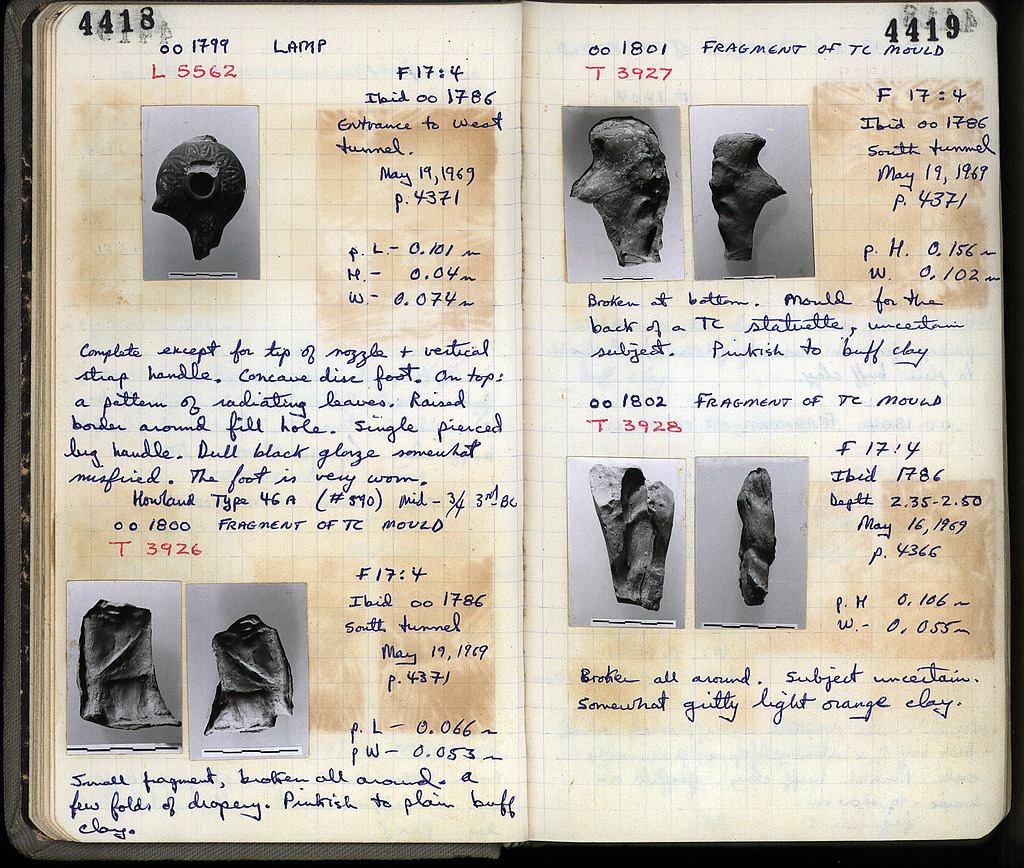 4418
oo 1799 LAMP
L 5562
F 17:4
Ibid oo 1786
Entrance to West
tunnel.
May 19, 1969
p. 4371
p. L.- 0.101 m
H.- 0.04 m
W.- 0.074 m
Complete except for tip of nozzle + vertical
strap handle. Concave disc foot. On top:
a pattern of radiating leaves. Raised
border around fill hole. Single pierced
lug handle. Dull black glaze somewhat
misfired. The foot is very worn.
Howland Type 46A (#590) Mid - 3/4 3rd BC
oo 1800 FRAGMENT OF TC MOULD
T 3926
F 17:4
Ibid oo 1786
South tunnel
May 19, 1969
p. 4371
p. L - 0.066 m
p W - 0.053 m
Small fragment, broken all around. A
few folds of drapery. Pinkish to plain buff
clay.
4419
oo 1801 FRAGMENT OF TC MOULD
T 3927
F 17:4
Ibid oo 1786
South tunnel
May 19, 1969
p. 4371
p. H. 0.156 m
W. 0.102 m
Broken at bottom. Mould for the
back of a TC statuette, uncertain
subject. Pinkish to buff clay
oo 1802 FRAGMENT OF TC MOULD
T 3928
F 17:4
Ibid 1786
Depth 2.35-2.50
May 16, 1969
p. 4366
p. H 0.106 m
W.- 0.055 m
Broken all around. Subject uncertain.
Somewhat gritty light orange clay.